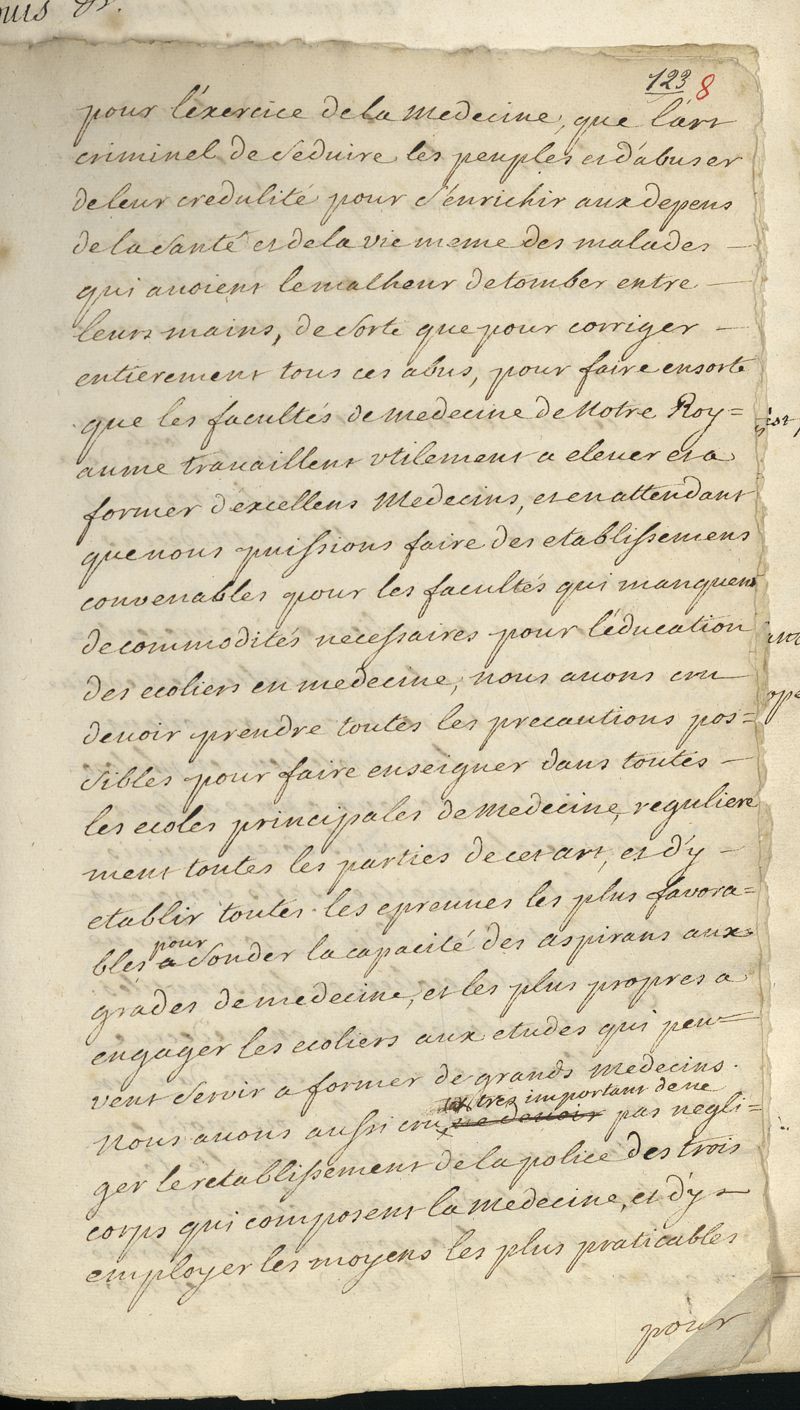 123 8
pour l'éxercice de la Medecine, que l'art
criminel de seduire les peuples et d'abuser
de leur credulité pour s'enrichir aux depens
de la santé et de la vie meme des malades
qui avoient le malheur de tomber entre
leurs mains, de sorte que pour corriger
entierement tous ces abus, pour faire ensorte
que les facultés de medecine de Notre Roy=
aume travaillent vtilement a elever et a
former d'excellens Medecins, et en attendant
que nous puissions faire des etablissemens
convenables pour les facultés qui manquent
de commodités necessaires pour l'éducation
des ecoliers en medecine, nous avons cru
devoir prendre toutes les precautions pos=
sibles pour faire enseigner dans toutes
les ecoles principales de Medecine, reguliere
ment toutes les parties de cet art, et d'y
etablir toutes les epreuves les plus favora=
bles a pour sonder la capacité des aspirans aux
grades de medecine, et les plus propres a
engager les ecoliers aux etudes qui peu=
vent servir a former de grands medecins.
Nous avons aussi cru ne devoir tres important de ne pas negli=
ger le retablissement de la police des trois
corps qui composent la Medecine, et d'y
employer les moyens les plus praticables
pour